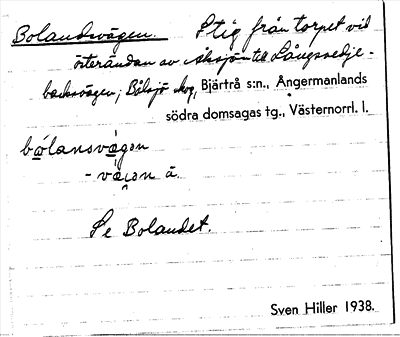 Bolandsvägen. Stig från torpet vid
österändan av Åksjön till Långsvedje-
backsvägen; Bålsjö skog, Bjärtrå s:n., Ångermanlands
södra domsagas tg., Västernorrl. l.
bólansvǻgən
- vä̀gən ä.
Se Bolandet.
Sven Hiller 1938.